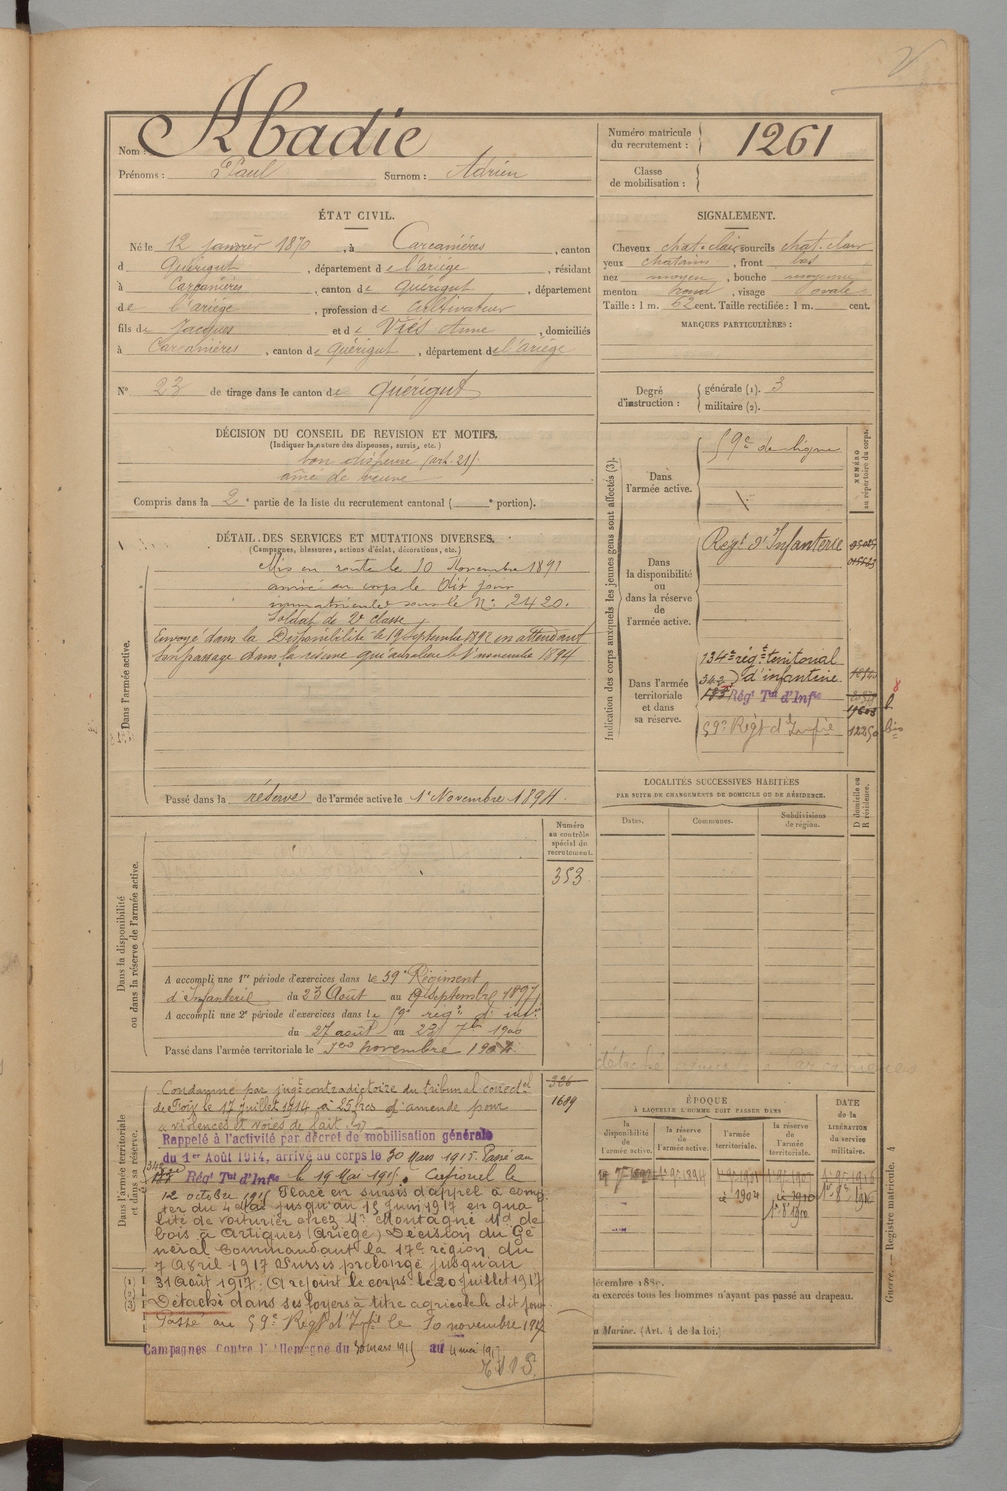 Nom : Abadie
Prénoms : Paul Surnom : Adrien
Numéro matricule du recrutement : 1261
Classe de mobilisation :
ÉTAT CIVIL.
Né le 12 janvier 1870, à Carcanières, canton
d Quérigut, département de l'ariége, résidant
à Carcanières, canton de Quérigut, département
de l'ariége, profession de Cultivateur
fils de Jacques et de Viès Anne, domiciliés
à Carcanières, canton de Quérigut, département de l'ariége
N° 23 de tirage dans le canton de Quérigut
SIGNALEMENT.
Cheveux chat. clair sourcils chat. clair
yeux chatains, front bas
nez moyen, bouche moyenne
menton rond, visage ovale
Taille : 1 m. 62 cent. Taille rectifiée : 1 m. cent.
MARQUES PARTICULIÈRES :
Degré d'instruction : générale (1). 3
militaire (2).
DÉCISION DU CONSEIL DE REVISION ET MOTIFS.
(Indiquer la nature des dispenses, sursis, etc.)
bon dispensé (art. 21)
aîné de veuve
Compris dans la 2e partie de la liste du recrutement cantonal ( e portion).
DÉTAIL DES SERVICES ET MUTATIONS DIVERSES.
(Campagnes, blessures, actions d'éclat, décorations, etc.)
Dans l'armée active.
Mis en route le 10 Novembre 1891
arrivé au corps le dit jour
immatriculé sous le N° 2420.
Soldat de 2e classe
Envoyé dans la Disponibilité le 19 Septembre 1892 en attendant
son passage dans la réserve qui aura lieu le 1er novembre 1894
Passé dans la réserve de l'armée active le 1er Novembre 1894.
Indication des corps auxquels les jeunes gens sont affectés (3).
NUMÉRO au répertoire du corps.
Dans l'armée active.
59e de ligne
Dans la disponibilité ou dans la réserve de l'armée active.
Regt d'Infanterie
Dans l'armée territoriale et dans sa réserve.
134e régt teritorial
d'infanterie
Régt Tal d'Infie
59e Regt d'Infie 12250 bis
LOCALITÉS SUCCESSIVES HABITÉES
PAR SUITE DE CHANGEMENTS DE DOMICILE OU DE RÉSIDENCE.
Dates. Communes. Subdivisions de région. D domicile ou R résidence.
Dans la disponibilité ou dans la réserve de l'armée active.
Numéro au contrôle spécial du recrutement.
353
A accompli une 1re période d'exercices dans le 59e Régiment
d'Infanterie du 23 Août au 19 Septembre 1897
A accompli une 2e période d'exercices dans le 59e régt d'infie
du 27 août au 23 7bre 1900
Passé dans l'armée territoriale le 1er novembre 1904
Dans l'armée territoriale et dans sa réserve.
326
1689
Condamné par jugt contradictoire du tribunal correctel
de Foix le 17 juillet 1914 à 25 frcs d'amende pour
violences et voies de fait
Rappelé à l'activité par décret de mobilisation générale
du 1er Août 1914, arrivé au corps le 30 Mars 1915. Passé au
Régt Tal d'Infie le 19 Mai 1915. Caporal le
12 octobre 1915 Placé en sursis d'appel à comp
ter du 4 Mai jusqu'au 15 Juin 1917 en qua
lité de voiturier chez Mr Montagne Md de
bois à Artigues (Ariège) Décision du Gé
néral Commandant la 17e région, du
7 Avril 1917 Sursis prolongé jusqu'au
31 Août 1917. A rejoint le corps le 20 juillet 1917
Détaché dans ses foyers à titre agricole le dit jour
Passé au 59e Régt d'Infie le 10 novembre 1917
Campagnes Contre l'Allemagne du 30 mars 1915 au 4 mai 1917
ÉPOQUE
À LAQUELLE L'HOMME DOIT PASSER DANS
la disponibilité de l'armée active. la réserve de l'armée active. l'armée territoriale. la réserve de l'armée territoriale.
DATE de la LIBÉRATION du service militaire.
1904
1910
décembre 1889.
n exercés tous les hommes n'ayant pas passé au drapeau.
Marine. (Art. 4 de la loi.)
Guerre. — Registre matricule. 4